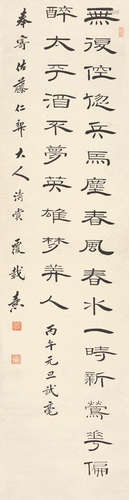 無復倥傯兵馬塵春風春水一時新鶯花偏
醉太平酒不夢英雄梦美人 丙午元旦試毫
奉寄佐藤仁契大人清賞